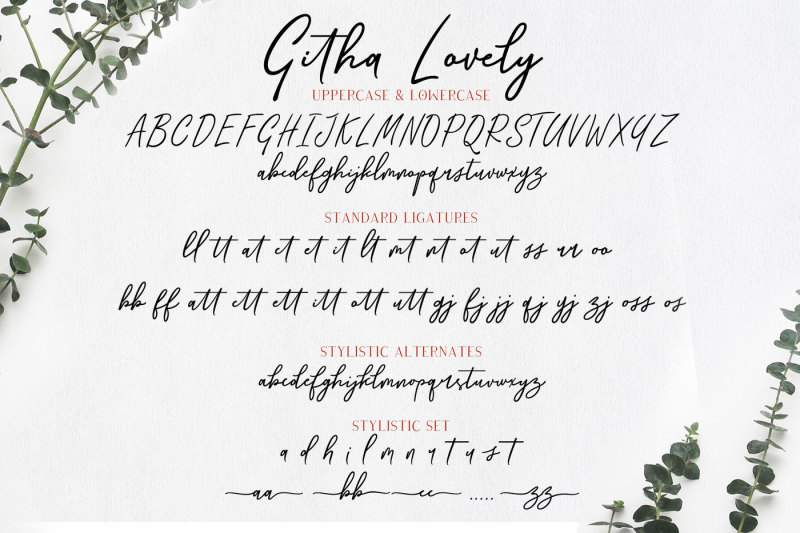 Githa Lovely
UPPERCASE & LOWERCASE
ABCDEFGHIJKLMNOPQRSTUVWXYZ
abcdefghijklmnopqrstuvwxyz
STANDARD LIGATURES
ll tt at ct et it lt mt nt ot ut ss rr oo
bb ff att ctt ett itt ott utt gj fj jj qj yj zj oss os
STYLISTIC ALTERNATES
abcdefghijklmnopqrstuvwxyz
STYLISTIC SET
a d h i l m n y t u s t
aa bb cc ..... zz